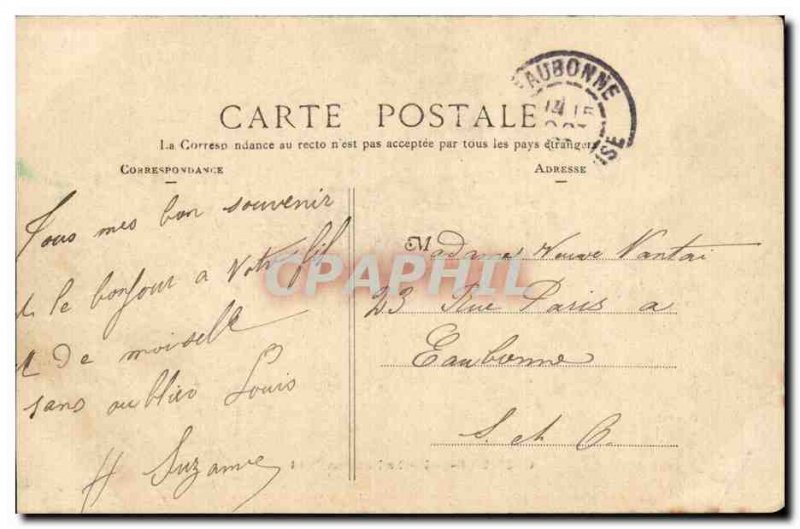 EAUBONNE
CARTE POSTALE
La Correspondance au recto n'est pas acceptée par tous les pays étrangers
CORRESPONDANCE
ADRESSE
Tous mes bon souvenir
le bonjour a votre fil
de moiselle
sans oublier Louis
Suzanne
Madame Veuve Vantai
23 Rue Paris a
Eaubonne
S. et O.
CPAPHIL